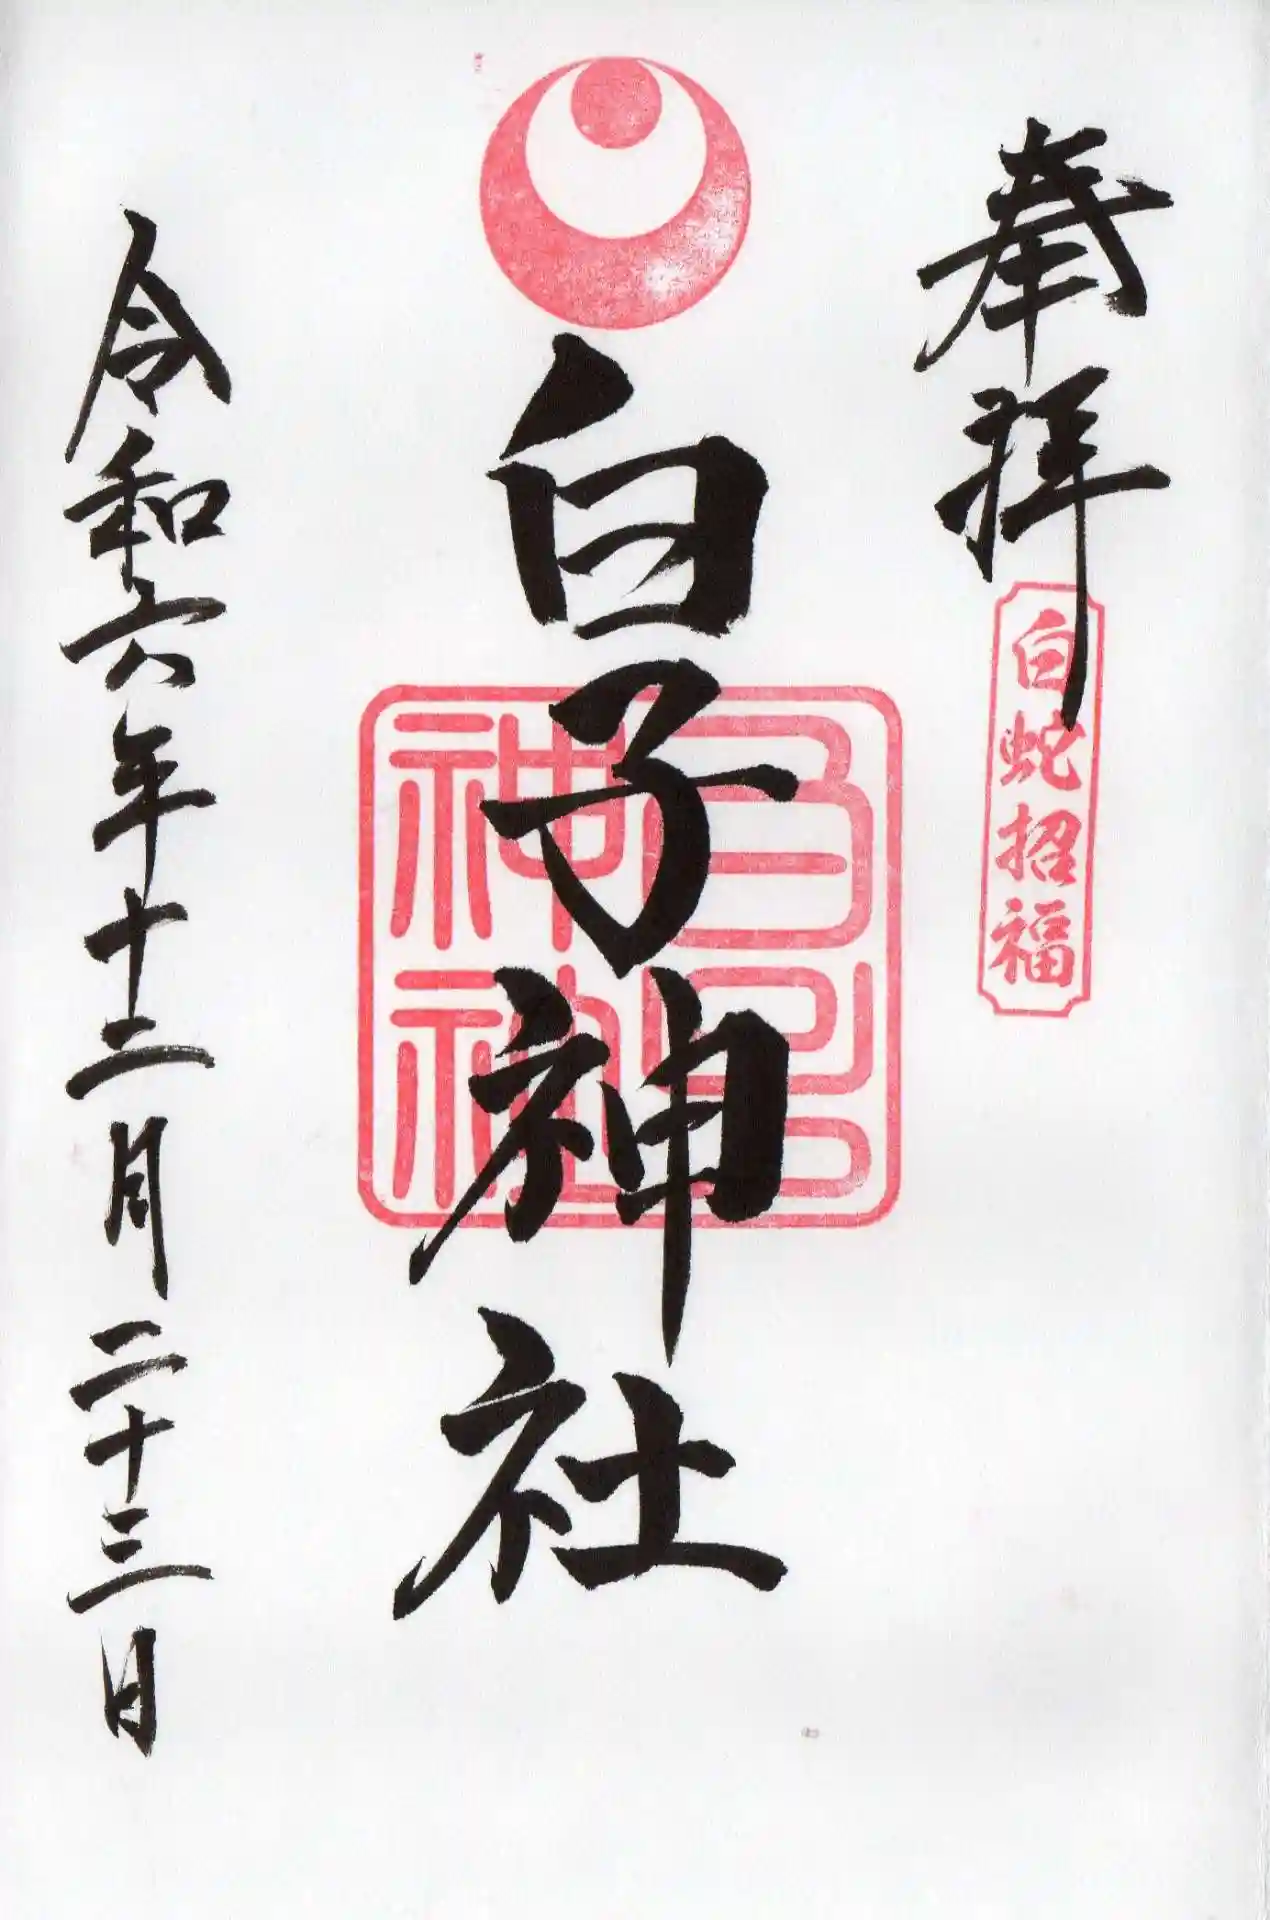 奉拝
白蛇招福
白子神社
白子
神社
令和六年十二月二十三日